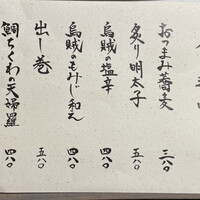 おつまみ蕎麦 三八〇
炙り明太子 五八〇
烏賊の塩辛 四八〇
烏賊のもみじ和え 四八〇
出し巻 五八〇
鯛ちくわの天婦羅 四八〇